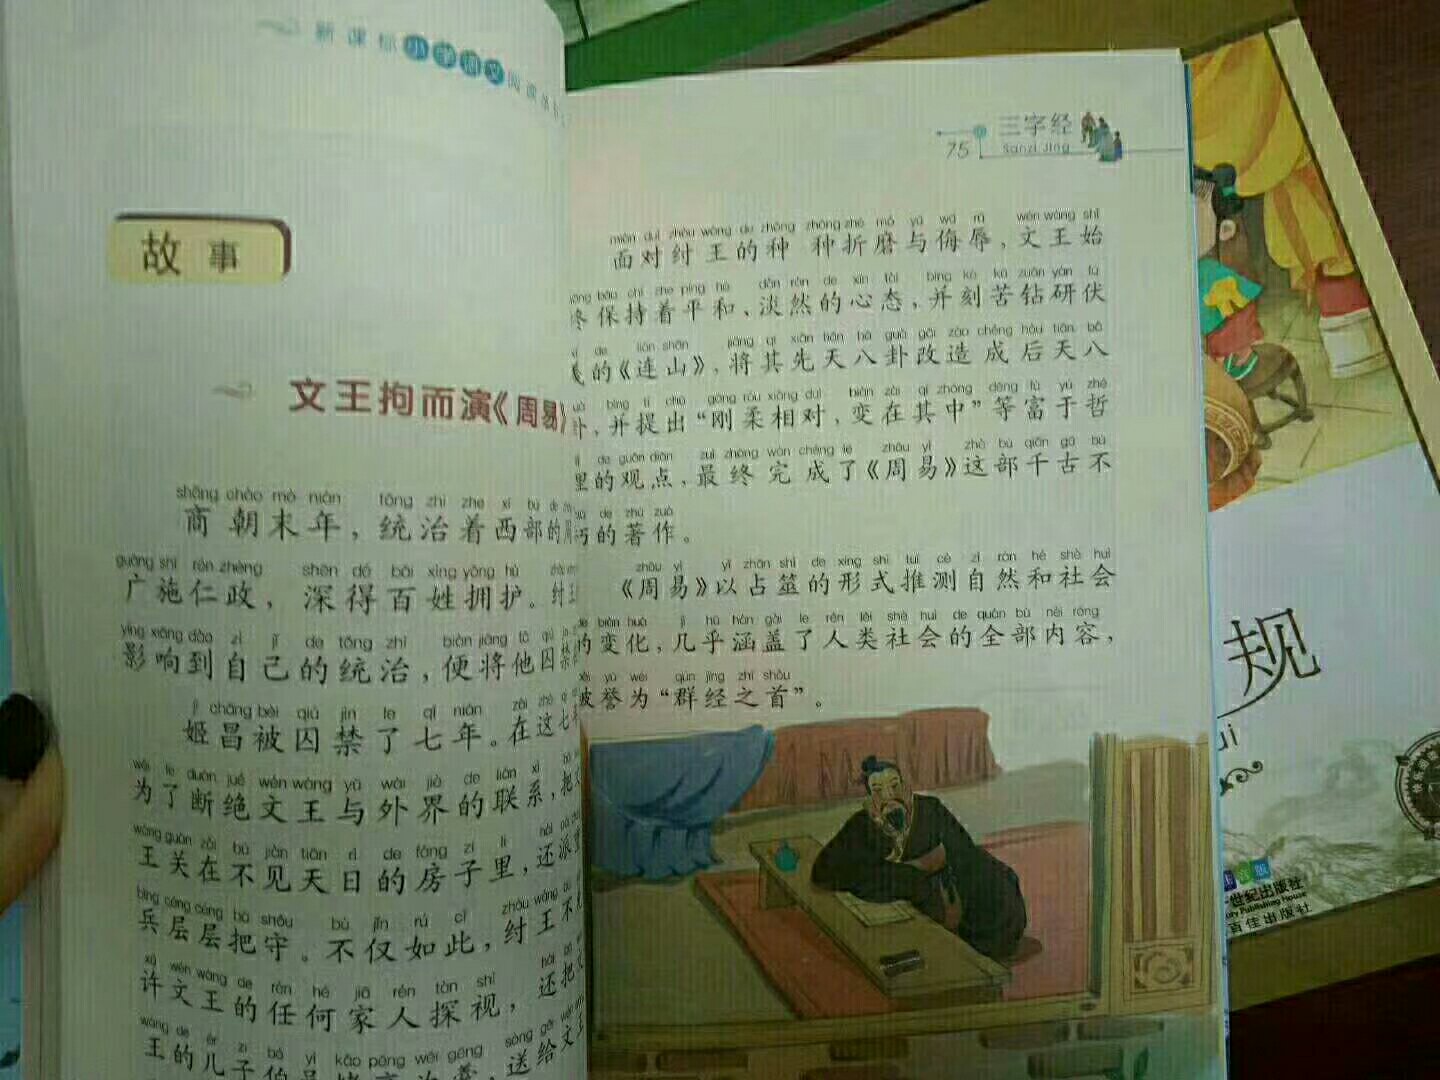 新课标小学语文阅读丛
故事
文王拘而演《周易》
shāng cháo mò nián tǒng zhì zhe xī bù de
商朝末年，统治着西部的周
guǎng shī rén zhèng shēn dé bǎi xìng yōng hù
广施仁政，深得百姓拥护。纣王
yǐng xiǎng dào zì jǐ de tǒng zhì biàn jiāng tā qiú
影响到自己的统治，便将他囚禁
jī chāng bèi qiú jìn le qī nián zài zhè qī
姬昌被囚禁了七年。在这七
wèi le duàn jué wén wáng yǔ wài jiè de lián xì bǎ
为了断绝文王与外界的联系，把
wáng guān zài bú jiàn tiān rì de fáng zi lǐ hái pài
王关在不见天日的房子里，还派
bīng céng céng bǎ shǒu bù jǐn rú cǐ zhòu wáng bù
兵层层把守。不仅如此，纣王不
xǔ wén wáng de rèn hé jiā rén tàn shì hái bǎ
许文王的任何家人探视，还把
wáng de ér zi bó yì kǎo pēng wéi gēng sòng gěi wén
王的儿子伯邑 送给文王
75
三字经
Sanzi Jing
miàn duì zhòu wáng de zhǒng zhǒng zhé mó yǔ wǔ rǔ wén wáng shǐ
面对纣王的种种折磨与侮辱，文王始
zhōng bǎo chí zhe píng hé dàn rán de xīn tài bìng kè kǔ zuān yán fú
终保持着平和、淡然的心态，并刻苦钻研伏
xī de lián shān jiāng qí xiān tiān bā guà gǎi zào chéng hòu tiān bā
羲的《连山》，将其先天八卦改造成后天八
guà bìng tí chū gāng róu xiāng duì biàn zài qí zhōng děng fù yú zhé
卦，并提出“刚柔相对，变在其中”等富于哲
lǐ de guān diǎn zuì zhōng wán chéng le zhōu yì zhè bù qiān gǔ bù
理的观点，最终完成了《周易》这部千古不
xiǔ de zhù zuò
朽的著作。
zhōu yì yǐ zhān shì de xíng shì tuī cè zì rán hé shè huì
《周易》以占筮的形式推测自然和社会
de biàn huà jī hū hán gài le rén lèi shè huì de quán bù nèi róng
的变化，几乎涵盖了人类社会的全部内容，
bèi yù wéi qún jīng zhī shǒu
被誉为“群经之首”。
规
注音版
世纪出版社
ury Publishing House
百佳出版社